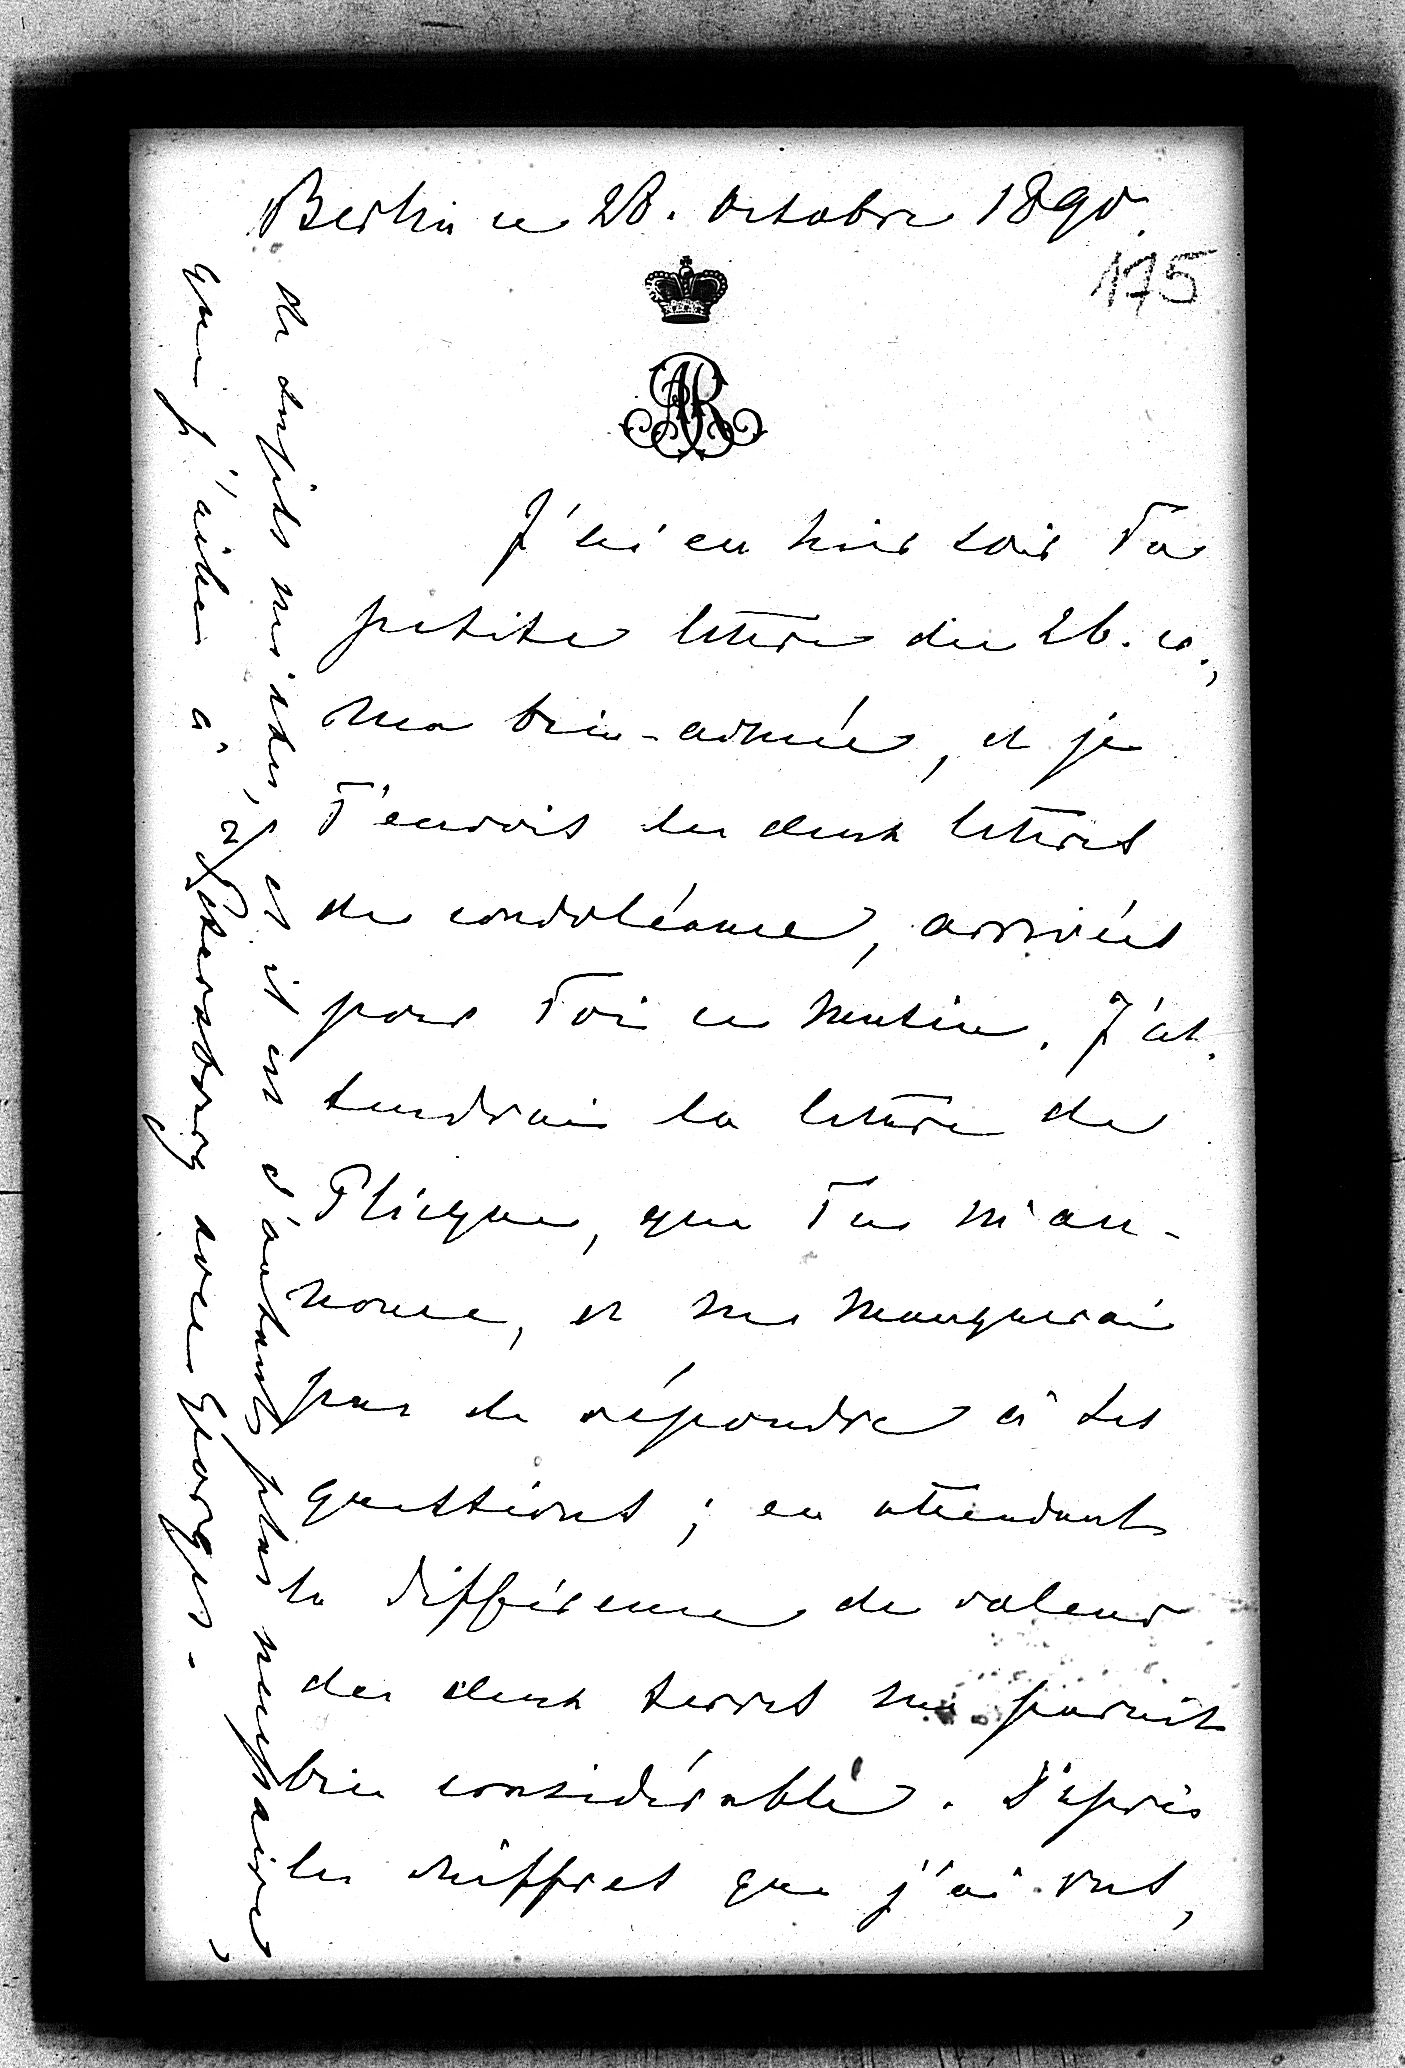 Berlin ce 28. Octobre 1890.
175
J'ai eu hier soir Ta
petite lettre du 26. c.,
ma bien-aimée, et je
T'envois les deux lettres
de condoléance, arrivées
pour Toi ce matin. J'at-
tendrai la lettre de
Plicque, que Tu m'an-
nonce, et ne manquerai
pas de répondre à tes
questions; en attendant
la différence de valeur
des deux terres me parait
bien considérable. D'après
les chiffres que j'ai vus,
de sujets mixtes, et il est d'autant plus nécessaire,
que j'aille à Petersbourg avec Georges.-